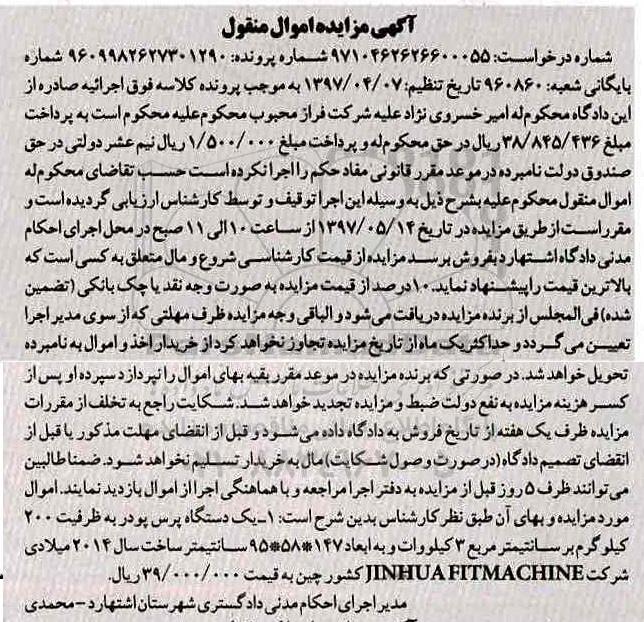 آگهی مزایده اموال منقول
شماره درخواست: ۹۷۱۰۴۶۲۶۲۶۶۰۰۰۵۵ شماره پرونده: ۹۶۰۹۹۸۲۶۲۷۳۰۱۲۹۰ شماره
بایگانی شعبه: ۹۶۰۸۶۰ تاریخ تنظیم: ۱۳۹۷/۰۴/۰۷ به موجب پرونده کلاسه فوق اجرائیه صادره از
این دادگاه محکوم‌له امیر خسروی نژاد علیه شرکت فراز محبوب محکوم‌علیه محکوم است به پرداخت
مبلغ ۳۸/۸۴۵/۴۳۶ ریال در حق محکوم‌له و پرداخت مبلغ ۱/۵۰۰/۰۰۰ ریال نیم عشر دولتی در حق
صندوق دولت نامبرده در موعد مقرر قانونی مفاد حکم را اجرا نکرده است حسب تقاضای محکوم‌له
اموال منقول محکوم‌علیه بشرح ذیل به وسیله این اجرا توقیف و توسط کارشناس ارزیابی گردیده است و
مقرر است از طریق مزایده در تاریخ ۱۳۹۷/۰۵/۱۴ از ساعت ۱۰ الی ۱۱ صبح در محل اجرای احکام
مدنی دادگاه اشتهارد بفروش برسد مزایده از قیمت کارشناسی شروع و مال متعلق به کسی است که
بالاترین قیمت را پیشنهاد نماید. ۱۰ درصد از قیمت مزایده به صورت وجه نقد یا چک بانکی (تضمین
شده) فی‌المجلس از برنده مزایده دریافت می‌شود و الباقی وجه مزایده ظرف مهلتی که از سوی مدیر اجرا
تعیین می گردد و حداکثر یک ماه از تاریخ مزایده تجاوز نخواهد کرد از خریدار اخذ و اموال به نامبرده
تحویل خواهد شد. در صورتی که برنده مزایده در موعد مقرر بقیه بهای اموال را نپردازد سپرده او پس از
کسر هزینه مزایده به نفع دولت ضبط و مزایده تجدید خواهد شد: شکایت راجع به تخلف از مقررات
مزایده ظرف یک هفته از تاریخ فروش به دادگاه داده می‌شود و قبل از انقضای مهلت مذکور یا قبل از
انقضای تصمیم دادگاه (در صورت وصول شکایت) مال به خریدار تسلیم نخواهد شود. ضمنا طالبین
می توانند ظرف ۵ روز قبل از مزایده به دفتر اجرا مراجعه و با هماهنگی اجرا از اموال بازدید نمایند. اموال
مورد مزایده و بهای آن طبق نظر کارشناس بدین شرح است: ۱-یک دستگاه پرس پودر به ظرفیت ۲۰۰
کیلوگرم بر سانتیمتر مربع ۳ کیلووات و به ابعاد ۱۴۷*۵۸*۹۵ سانتیمتر ساخت سال ۲۰۱۴ میلادی
شرکت JINHUA FITMACHINE کشور چین به قیمت ۳۹/۰۰۰/۰۰۰ ریال.
مدیر اجرای احکام مدنی دادگستری شهرستان اشتهارد - محمدی